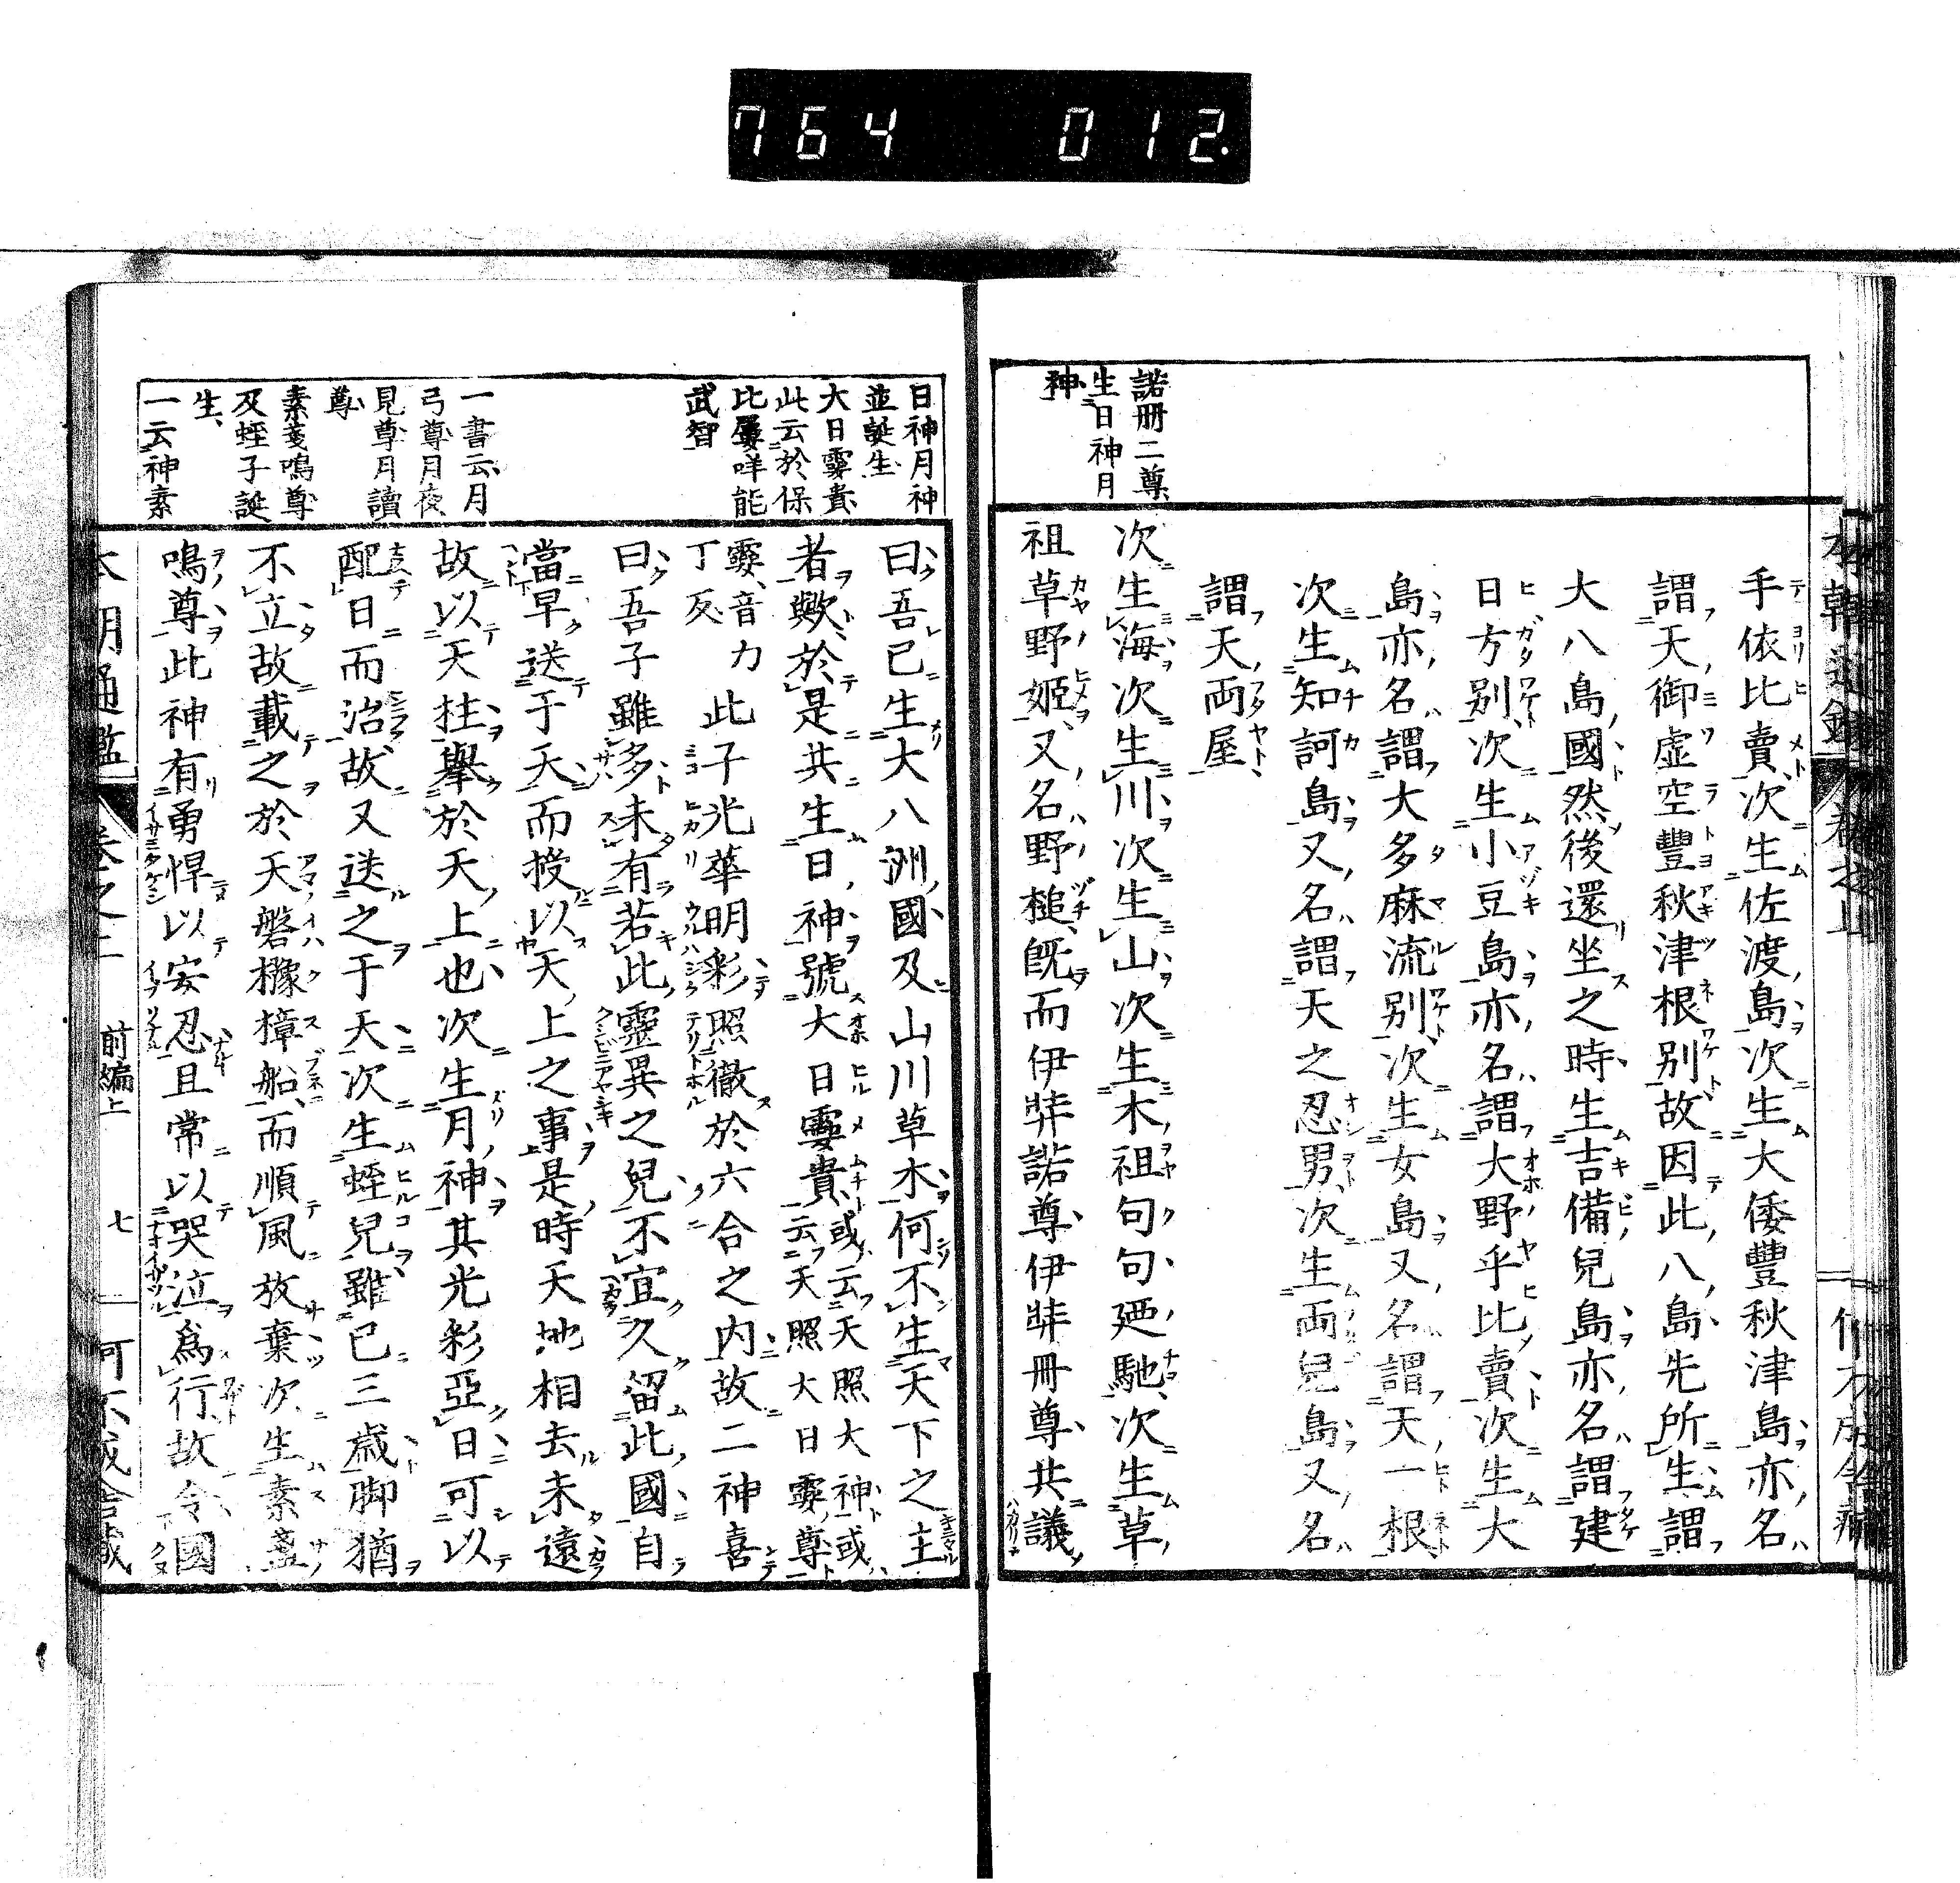 764 012.
諾册二尊
生日神月
神
手依比賣次生佐渡島次生大倭豐秋津島亦名
謂天御虛空豐秋津根別故因此八島先所生謂
大八島國然後還坐之時生吉備兒島亦名謂建
日方別次生小豆島亦名謂大野乎比賣次生大
島亦名謂大多麻流別次生女島又名謂天一根
次生知訶島又名謂天之忍男次生兩兒島又名
謂天兩屋
次生海次生川次生山次生木祖句句廼馳次生草
祖草野姬又名野槌既而伊弉諾尊伊弉冊尊共議
日神月神
並誕生
大日孁貴
此云於保
比屢咩能
武智
一書云月
弓尊月夜
見尊月讀
尊
素戔嗚尊
及蛭子誕
生
一云神素
曰吾已生大八洲國及山川草木何不生天下之主
者歟於是共生日神號大日孁貴或云天照大神或
云天照大日孁尊
孁音力
丁反
此子光華明彩照徹於六合之內故二神喜
曰吾子雖多未有若此靈異之兒不宜久留此國自
當早送于天而授以天上之事是時天地相去未遠
故以天柱擧於天上也次生月神其光彩亞日可以
配日而治故又送之于天次生蛭兒雖已三歲脚猶
不立故載之於天磐櫲樟船而順風放棄次生素盞
嗚尊此神有勇悍以安忍且常以哭泣爲行故令國
本朝通鑑 卷之一 前編上 七